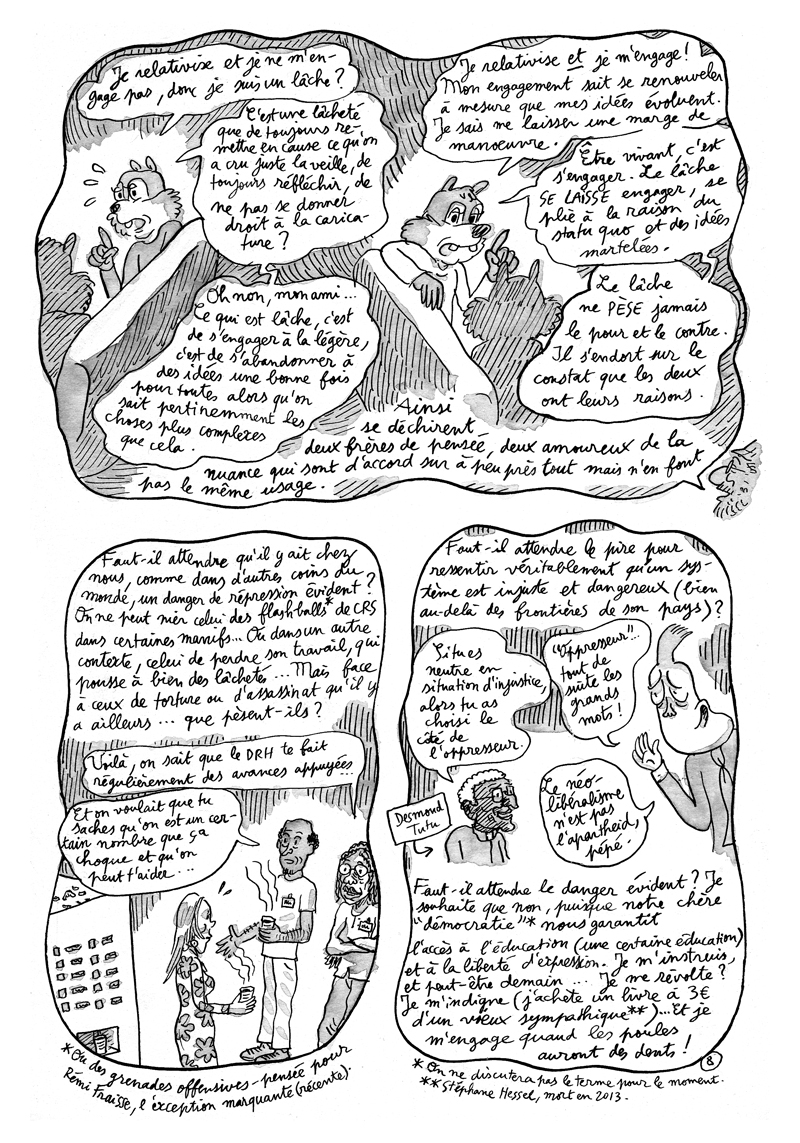 Je relativise et je ne m'en-
gage pas, donc je suis un lâche ?
C'est une lâcheté
que de toujours re-
mettre en cause ce qu'on
a cru juste la veille, de
toujours réfléchir, de
ne pas se donner
droit à la carica-
ture ?
Oh non, mon ami...
Ce qui est lâche, c'est
de s'engager à la légère,
c'est de s'abandonner à
des idées une bonne fois
pour toutes alors qu'on
sait pertinemment les
choses plus complexes
que cela.
Je relativise et je m'engage !
Mon engagement sait se renouveler
à mesure que mes idées évoluent.
Je sais me laisser une marge de
manoeuvre.
Être vivant, c'est
s'engager. Le lâche
SE LAISSE engager, se
plie à la raison du
statu quo et des idées
martelées.
Le lâche
ne PÈSE jamais
le pour et le contre.
Il s'endort sur le
constat que les deux
ont leurs raisons.
Ainsi
se déchirent
deux frères de pensée, deux amoureux de la
nuance qui sont d'accord sur à peu près tout mais n'en font
pas le même usage.
Faut-il attendre qu'il y ait chez
nous, comme dans d'autres coins du
monde, un danger de répression évident ?
On ne peut nier celui des flashballs* de CRS
dans certaines manifs... Ou dans un autre
contexte, celui de perdre son travail, qui
pousse à bien des lâchetés... Mais face
à ceux de torture ou d'assassinat qu'il y
a ailleurs... que pèsent-ils ?
Voilà, on sait que le DRH te fait
régulièrement des avances appuyées...
Et on voulait que tu
saches qu'on est un cer-
tain nombre que ça
choque et qu'on
peut t'aider...
*Ou des grenades offensives - pensée pour
Rémi Fraisse, l'exception marquante (récente).
Faut-il attendre le pire pour
ressentir véritablement qu'un sys-
tème est injuste et dangereux (bien
au-delà des frontières de son pays) ?
Si tu es
neutre en
situation d'injustice,
alors tu as
choisi le
côté de
l'oppresseur.
"Oppresseur"...
tout de
suite les
grands
mots !
Desmond
Tutu
Le néo-
libéralisme
n'est pas
l'apartheid,
pépé.
Faut-il attendre le danger évident ? Je
souhaite que non, puisque notre chère
"démocratie"* nous garantit
l'accès à l'éducation (une certaine éducation)
et à la liberté d'expression. Je m'instruis,
et peut-être demain... Je me révolte ?
Je m'indigne (j'achète un livre à 3€
d'un vieux sympathique**)... Et je
m'engage quand les poules
auront des dents !
8
* On ne discutera pas le terme pour le moment.
** Stéphane Hessel, mort en 2013.